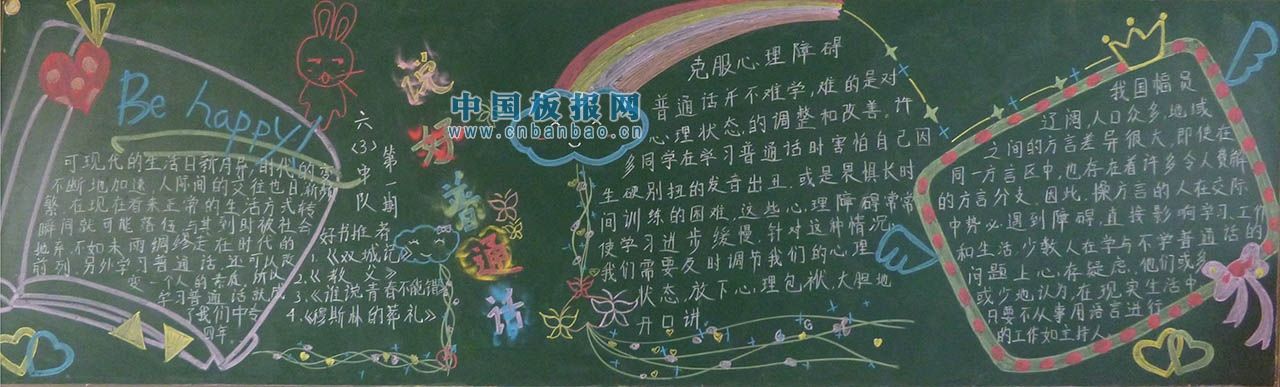 Be happy!
可现代的生活日新月异,时代的变频
不断地加速,人际间的交往也日渐频
繁,在现在看来正常的生活方式转
瞬间就可能落伍,与其到时被社会
地弃,不如未雨绸缪走在时代的
前列,另外学习普通话还可以改
变一个人的素质,所以
学习普通话就成
了我们中专
四年。
六(3)中队
第一期
好书推荐
1.《双城记》
2.《教父》
3.《谁说青春不能错》
4.《穆斯林的葬礼》
说好普通话
中国板报网
www.cnbanbao.cn
克服心理障碍
普通话并不难学,难的是对
心理状态的调整和改善,许
多同学在学习普通话时害怕自己因
生硬别扭的发音出丑,或是畏惧长时
间训练的困难,这些心理障碍常常
使学习进步缓慢,针对这种情况,
我们需要及时调节我们的心理
状态,放下心理包袱,大胆地
开口讲.
我国幅员
辽阔,人口众多,地域
之间的方言差异很大,即使在
同一方言区中,也存在着许多令人费解
的方言分支.因此,操方言的人在交际
中势必遇到障碍,直接影响学习,工作
和生活,少数人在学与不学普通话的
问题上心存疑虑,他们或多
或少地认为,在现实生活中
只要不从事用语言进行
的工作如主持人.